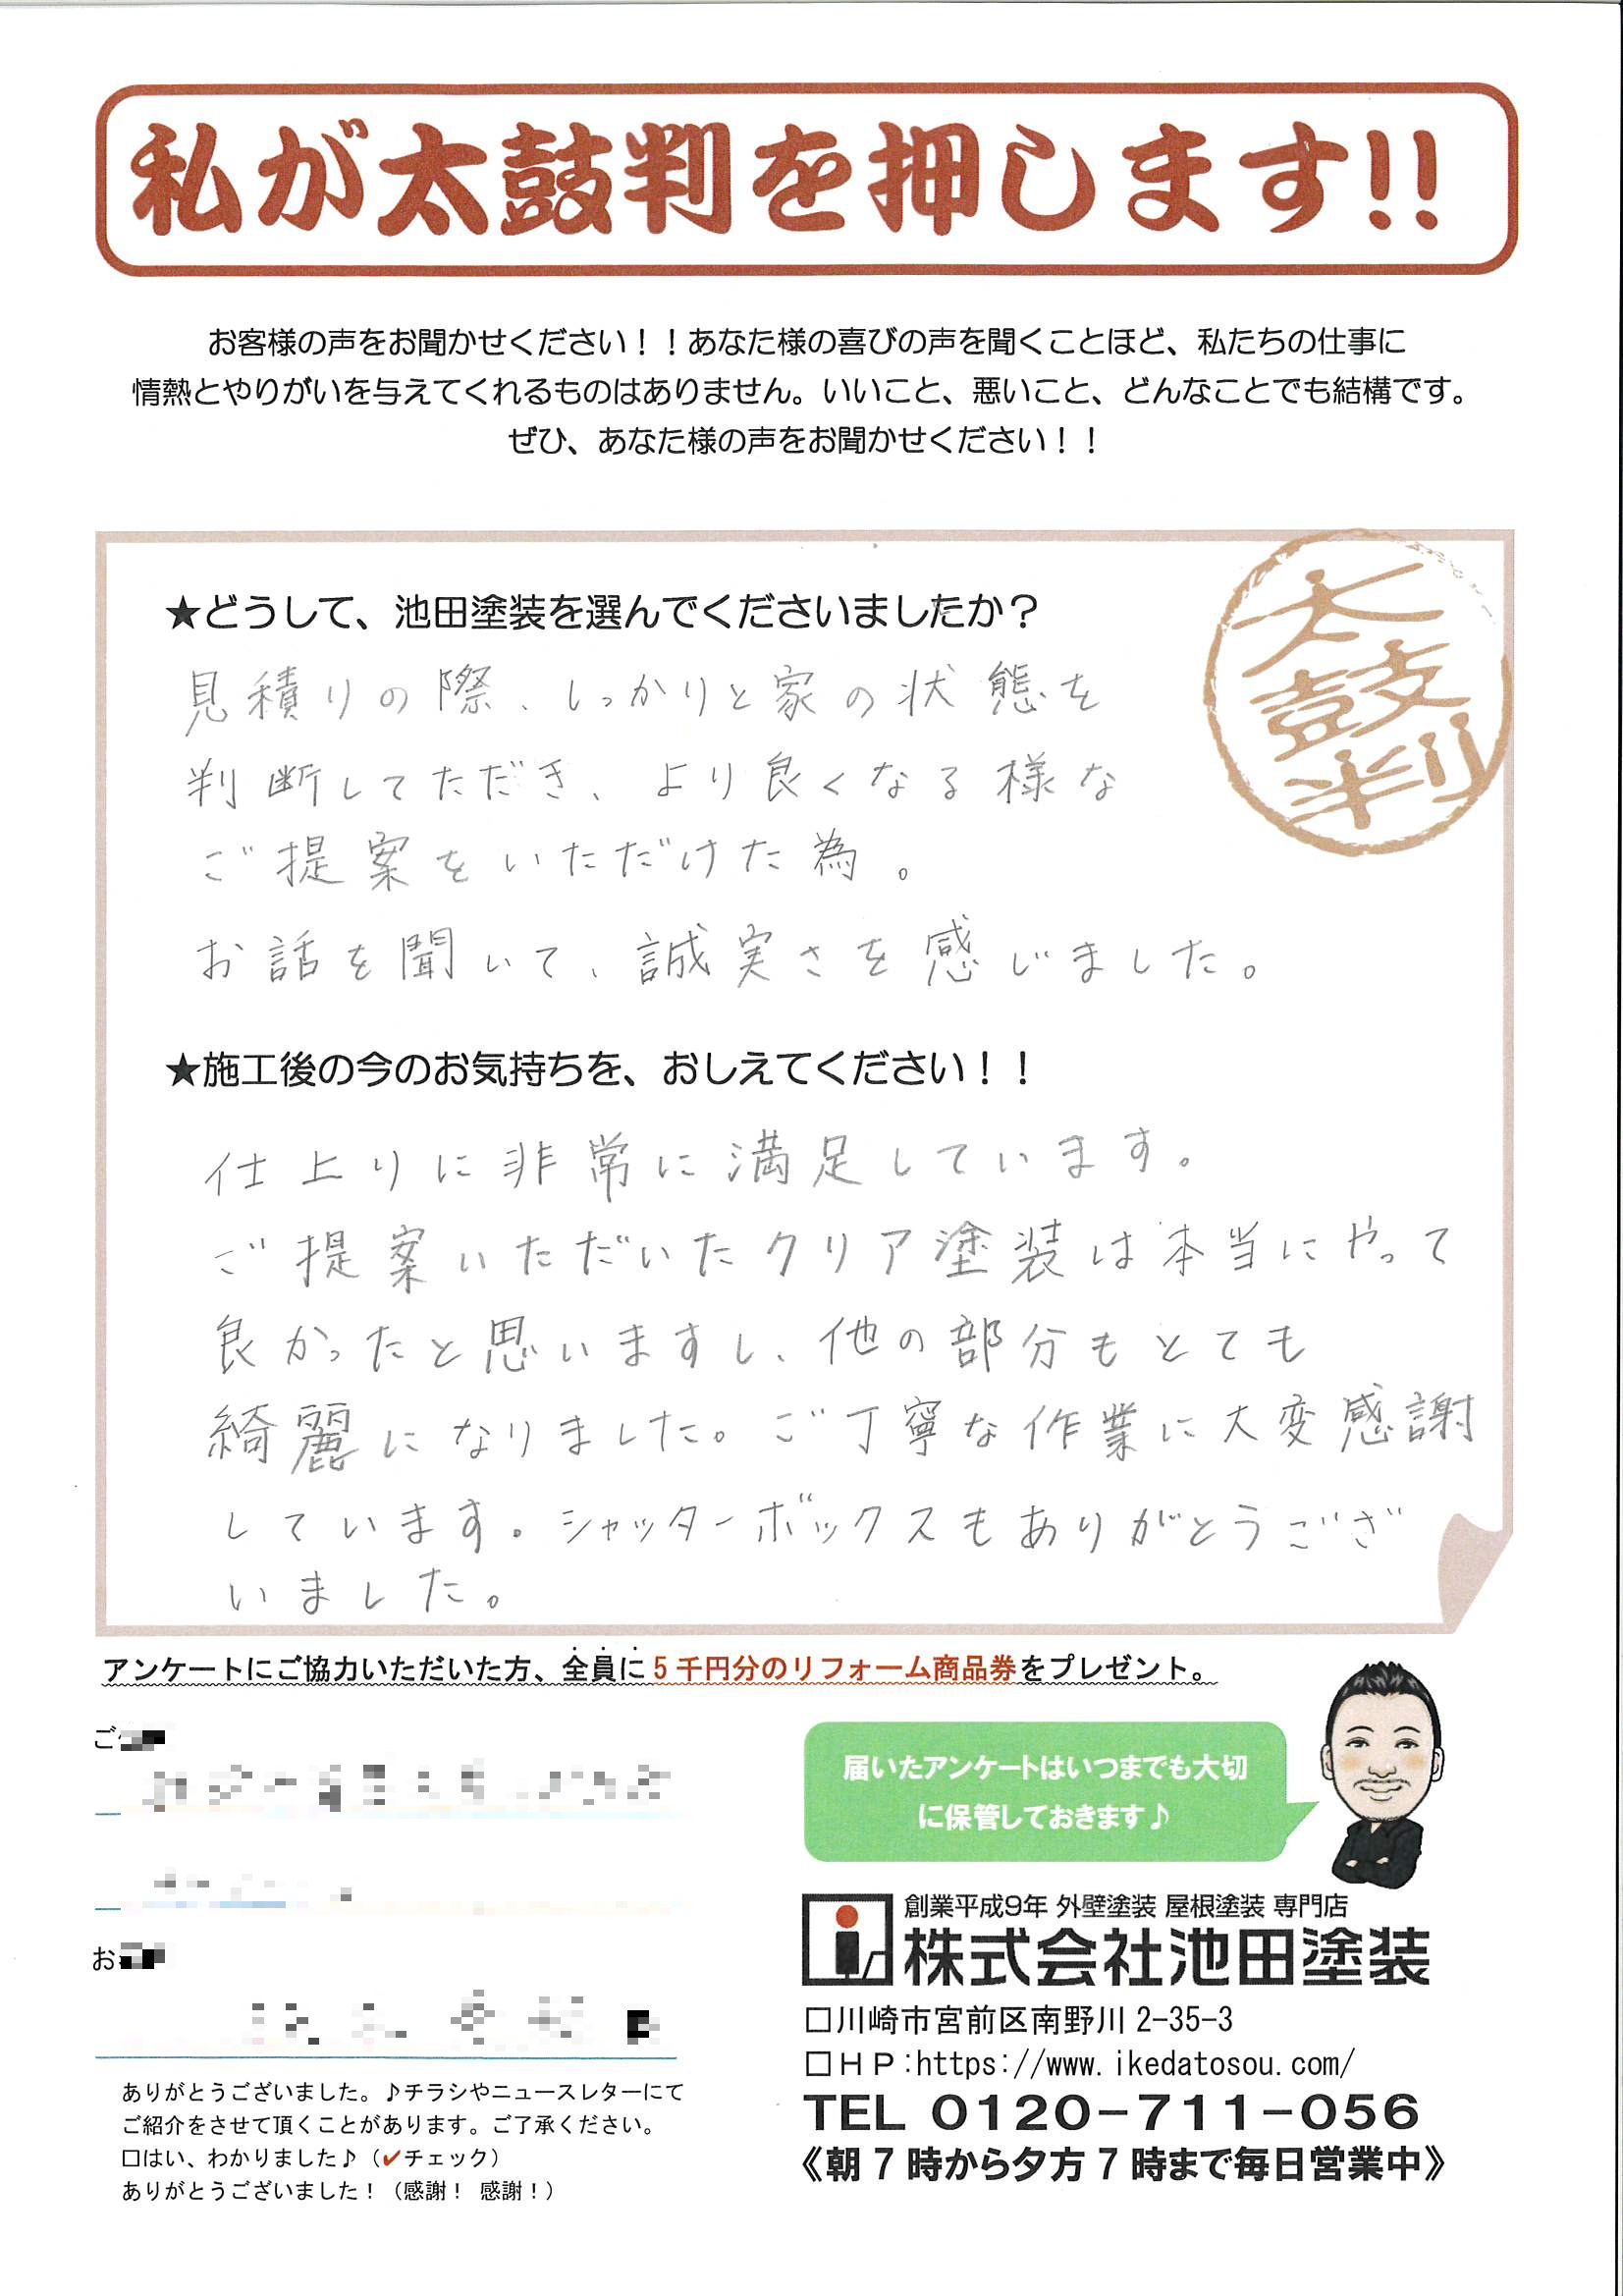 私が太鼓判を押します!!
お客様の声をお聞かせください！！あなた様の喜びの声を聞くことほど、私たちの仕事に
情熱とやりがいを与えてくれるものはありません。いいこと、悪いこと、どんなことでも結構です。
ぜひ、あなた様の声をお聞かせください！！
太鼓判
★どうして、池田塗装を選んでくださいましたか？
見積りの際、しっかりと家の状態を
判断してただき、より良くなる様な
ご提案をいただけた為。
お話を聞いて、誠実さを感じました。
★施工後の今のお気持ちを、おしえてください！！
仕上りに非常に満足しています。
ご提案いただいたクリア塗装は本当にやって
良かったと思いますし、他の部分もとても
綺麗になりました。ご丁寧な作業に大変感謝
しています。シャッターボックスもありがとうござ
いました。
アンケートにご協力いただいた方、全員に5千円分のリフォーム商品券をプレゼント。
ご
お
ありがとうございました。♪チラシやニュースレターにて
ご紹介をさせて頂くことがあります。ご了承ください。
□はい、わかりました♪（✔チェック）
ありがとうございました！（感謝！ 感謝！）
届いたアンケートはいつまでも大切
に保管しておきます♪
創業平成9年 外壁塗装 屋根塗装 専門店
株式会社池田塗装
□川崎市宮前区南野川 2-35-3
□ＨＰ:https://www.ikedatosou.com/
TEL 0120-711-056
《朝7時から夕方7時まで毎日営業中》